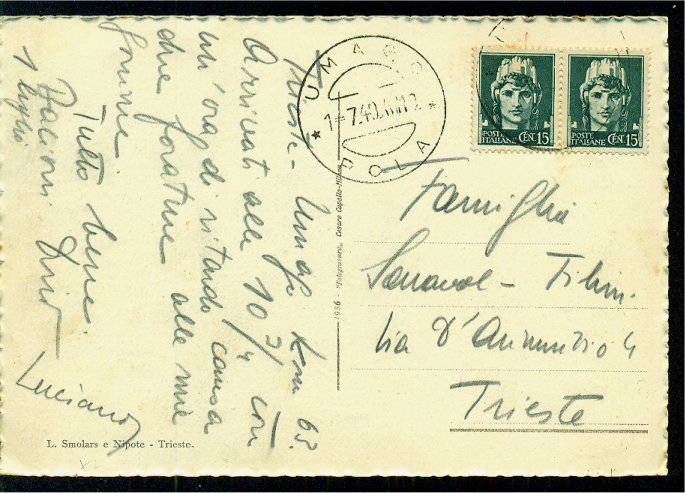 Trieste - Umago Km 63.
Arrivati alle 10 3/4 con
un'ora di ritardo causa
due forature alle mie
gomme.
Tutto bene.
Bacioni
1 luglio
Luciano
UMAGO
1-7.40.
POLA
POSTE ITALIANE CEN. 15
POSTE ITALIANE CEN. 15
Famiglia
Via D'Annunzio 4
Trieste
1936
L. Smolars e Nipote - Trieste.